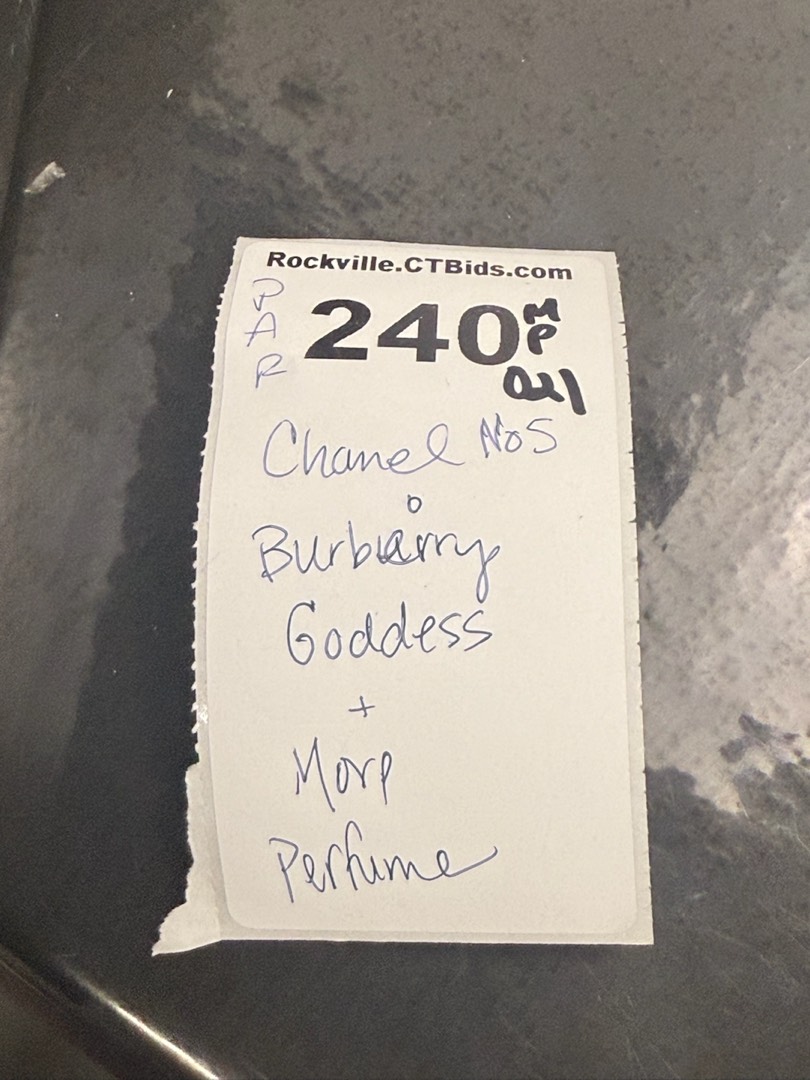 Rockville.CTBids.com
PAR
240 MP
Chanel No5
Burberry
Goddess
+
More
Perfume